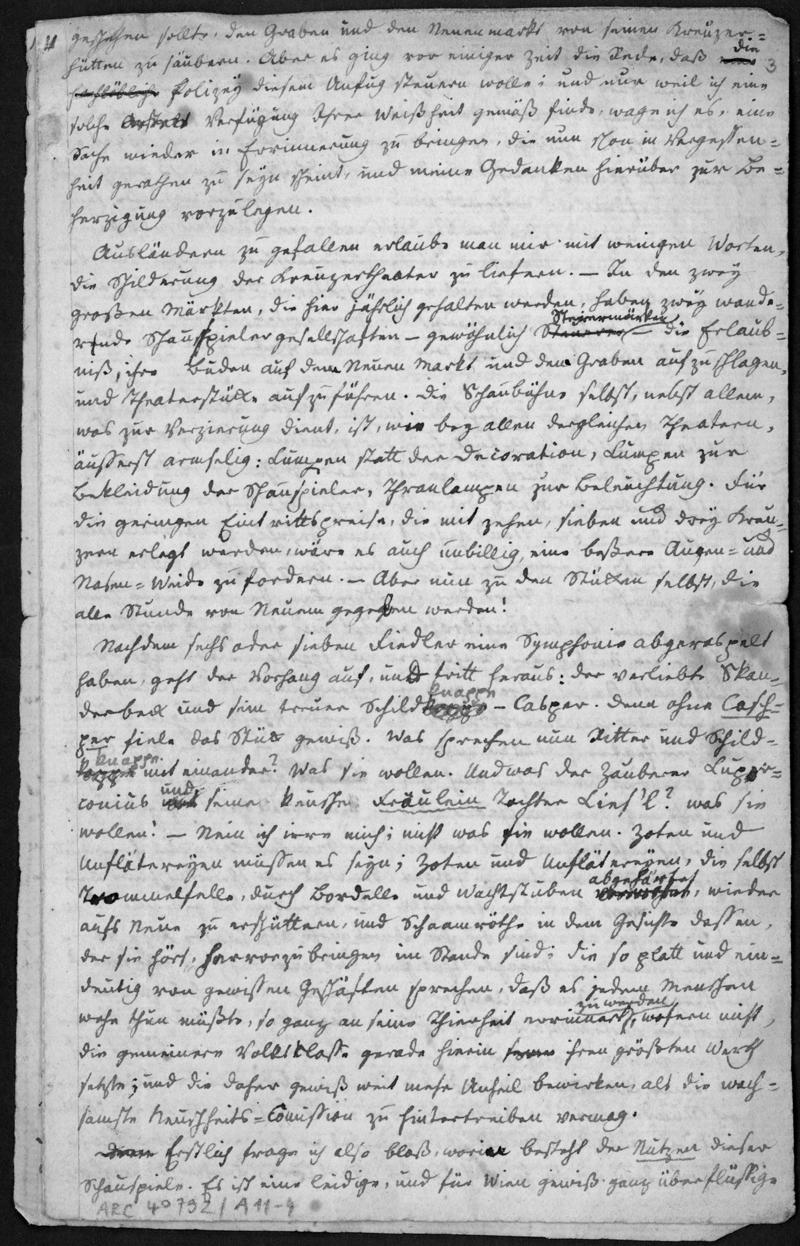 4
3
geschehen sollte, den Graben und den Neuenmarkt von seinen Kreuzer-
hütten zu säubern. Aber es ging vor einiger Zeit die Rede, daß die
Polizey diesem Unfug steuern wolle; und nur weil ich eine
solche Verfügung Ihrer Weißheit gemäß finde, wage ich es, eine
Sache wieder in Errinnerung zu bringen, die nun schon in Vergessen-
heit gerathen zu seyn scheint, und meine Gedanken hierüber zur Be-
herzigung vorzulegen.
Ausländern zu gefallen erlaube man mir mit wenigen Worten,
die Schilderung der Kreuzertheater zu liefern. — In den zwey
großen Märkten, die hier jährlich gehalten werden, haben zwey wande-
rende Schauspielergesellschaften – gewöhnlich Steyermärker – die Erlaub-
niß, ihre Buden auf dem Neuen Markt und dem Graben aufzuschlagen,
und Theaterstücke aufzuführen. Die Schaubühne selbst, nebst allem,
was zur Verzierung dient, ist, wie bey allen dergleichen Theatern,
äusserst armselig: Lumpen statt der Decoration, Lumpen zur
Bekleidung der Schauspieler, Thranlampen zur Beleuchtung. Für
die geringen Eintrittspreise, die mit zehen, sieben und drey Kreu-
zern erlegt werden, wäre es auch unbillig, eine beßere Augen- und
Nasen-Weide zu fordern. — Aber nun zu den Stücken selbst, die
alle Stunde von Neuem gegeben werden!
Nachdem sechs oder sieben Fiedler eine Symphonie abgeraspelt
haben, geht der Vorhang auf, und tritt heraus: der verliebte Skan-
derbeck und sein treuer Schildknappe – Casper. Denn ohne Casch-
per fiele das Stück gewiß. Was sprechen nun Ritter und Schild-
knappe mit einander? Was sie wollen. Und was der Zauberer
und seine keusche Fräulein Tochter Lies'l? was sie
wollen! — Nein ich irre mich; nicht was sie wollen. Zoten und
Unflätereyen müssen es seyn; Zoten und Unflätereyen, die selbst
Trommelfelle, durch Bordelle und Wachtstuben abgehärtet, wieder
aufs Neue zu erschüttern, und Schaamröthe in dem Gesichte dessen,
der sie hört, hervorzubringen im Stande sind; die so platt und ein-
deutig von gewissen Geschäften sprechen, daß es jedem Menschen
wehe thun müßte, so ganz an seine Thierheit errinnert zu werden, wofern nicht,
die gemeinere Volksklasse gerade hierin ihren größten Werth
setzte; und die daher gewiß weit mehr Unheil bewirken, als die wach-
samste Keuschheits-Comission zu hintertreiben vermag.
Erstlich frage ich also bloß, worin besteht der Nutzen dieser
Schauspiele. Es ist eine leidige, und für Wien gewiß ganz überflüssige